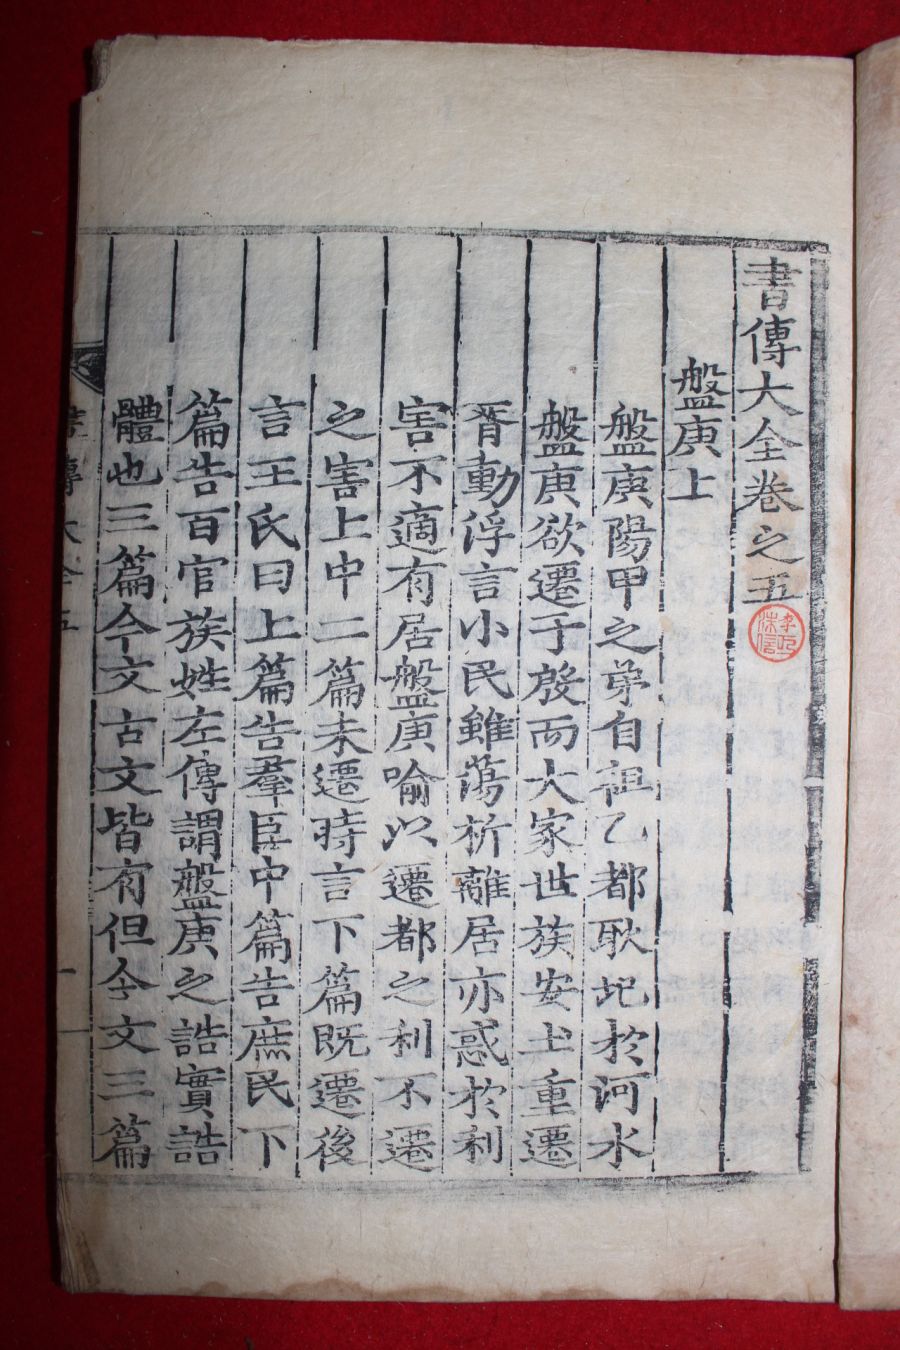 書傳大全卷之五
盤庚上
盤庚陽甲之弟自祖乙都耿圮於河水
盤庚欲遷于殷而大家世族安土重遷
胥動浮言小民雖蕩析離居亦惑於利
害不適有居盤庚喻以遷都之利不遷
之害上中二篇未遷時言下篇既遷後
言王氏曰上篇告羣臣中篇告庶民下
篇告百官族姓左傳謂盤庚之誥實誥
體也三篇今文古文皆有但今文三篇
書傳大全五
一